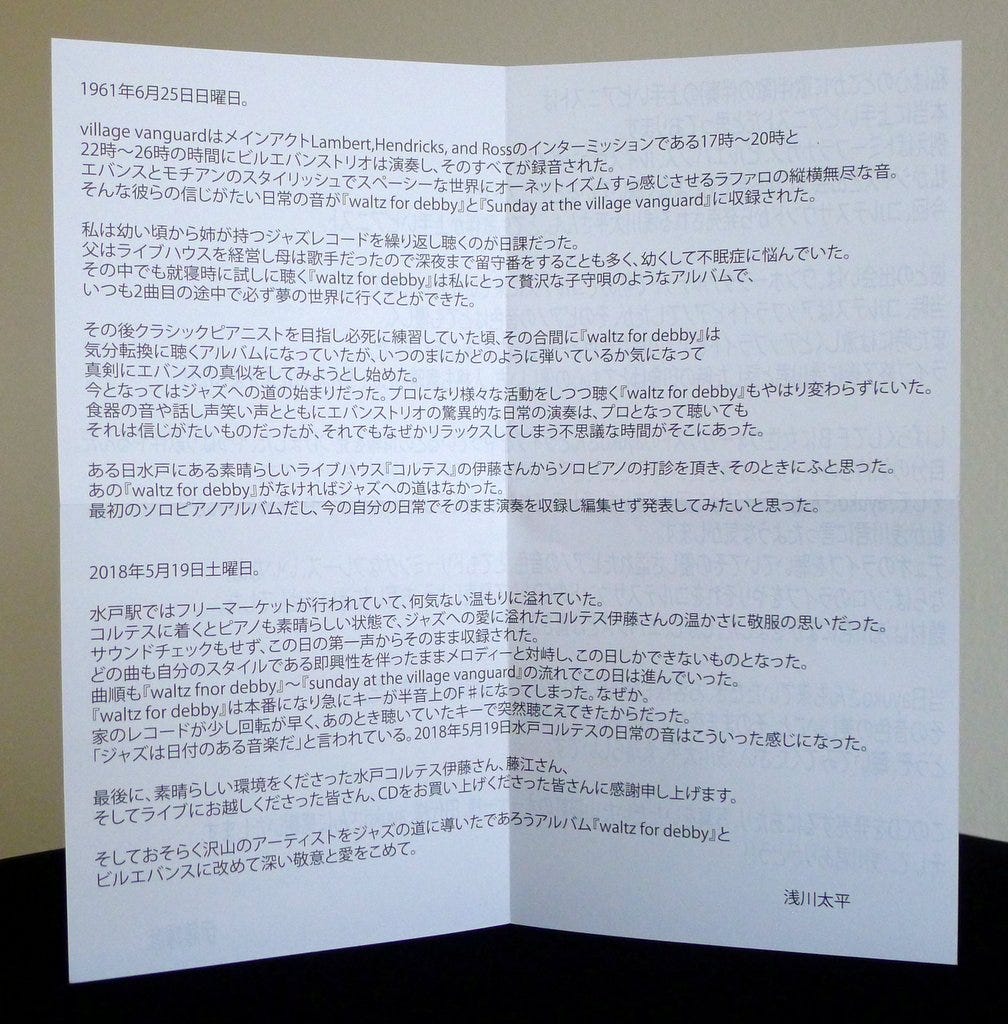 1961年6月25日日曜日。
village vanguardはメインアクトLambert,Hendricks, and Rossのインターミッションである17時～20時と
22時～26時の時間にビルエバンストリオは演奏し、そのすべてが録音された。
エバンスとモチアンのスタイリッシュでスペーシーな世界にオーネットイズムすら感じさせるラファロの縦横無尽な音。
そんな彼らの信じがたい日常の音が『waltz for debby』と『Sunday at the village vanguard』に収録された。
私は幼い頃から姉が持つジャズレコードを繰り返し聴くのが日課だった。
父はライブハウスを経営し母は歌手だったので深夜まで留守番をすることも多く、幼くして不眠症に悩んでいた。
その中でも就寝時に試しに聴く『waltz for debby』は私にとって贅沢な子守唄のようなアルバムで、
いつも2曲目の途中で必ず夢の世界に行くことができた。
その後クラシックピアニストを目指し必死に練習していた頃、その合間に『waltz for debby』は
気分転換に聴くアルバムになっていたが、いつのまにかどのように弾いているか気になって
真剣にエバンスの真似をしてみようとし始めた。
今となってはジャズへの道の始まりだった。プロになり様々な活動をしつつ聴く『waltz for debby』もやはり変わらずにいた。
食器の音や話し声笑い声とともにエバンストリオの驚異的な日常の演奏は、プロとなって聴いても
それは信じがたいものだったが、それでもなぜかリラックスしてしまう不思議な時間がそこにあった。
ある日水戸にある素晴らしいライブハウス『コルテス』の伊藤さんからソロピアノの打診を頂き、そのときにふと思った。
あの『waltz for debby』がなければジャズへの道はなかった。
最初のソロピアノアルバムだし、今の自分の日常でそのまま演奏を収録し編集せず発表してみたいと思った。
2018年5月19日土曜日。
水戸駅ではフリーマーケットが行われていて、何気ない温もりに溢れていた。
コルテスに着くとピアノも素晴らしい状態で、ジャズへの愛に溢れたコルテス伊藤さんの温かさに敬服の思いだった。
サウンドチェックもせず、この日の第一声からそのまま収録された。
どの曲も自分のスタイルである即興性を伴ったままメロディーと対峙し、この日しかできないものとなった。
曲順も『waltz fnor debby』～『sunday at the village vanguard』の流れでこの日は進んでいった。
『waltz for debby』は本番になり急にキーが半音上のF♯になってしまった。なぜか。
家のレコードが少し回転が早く、あのとき聴いていたキーで突然聴こえてきたからだった。
「ジャズは日付のある音楽だ」と言われている。2018年5月19日水戸コルテスの日常の音はこういった感じになった。
最後に、素晴らしい環境をくださった水戸コルテス伊藤さん、藤江さん、
そしてライブにお越しくださった皆さん、CDをお買い上げくださった皆さんに感謝申し上げます。
そしておそらく沢山のアーティストをジャズの道に導いたであろうアルバム『waltz for debby』と
ビルエバンスに改めて深い敬意と愛をこめて。
浅川太平